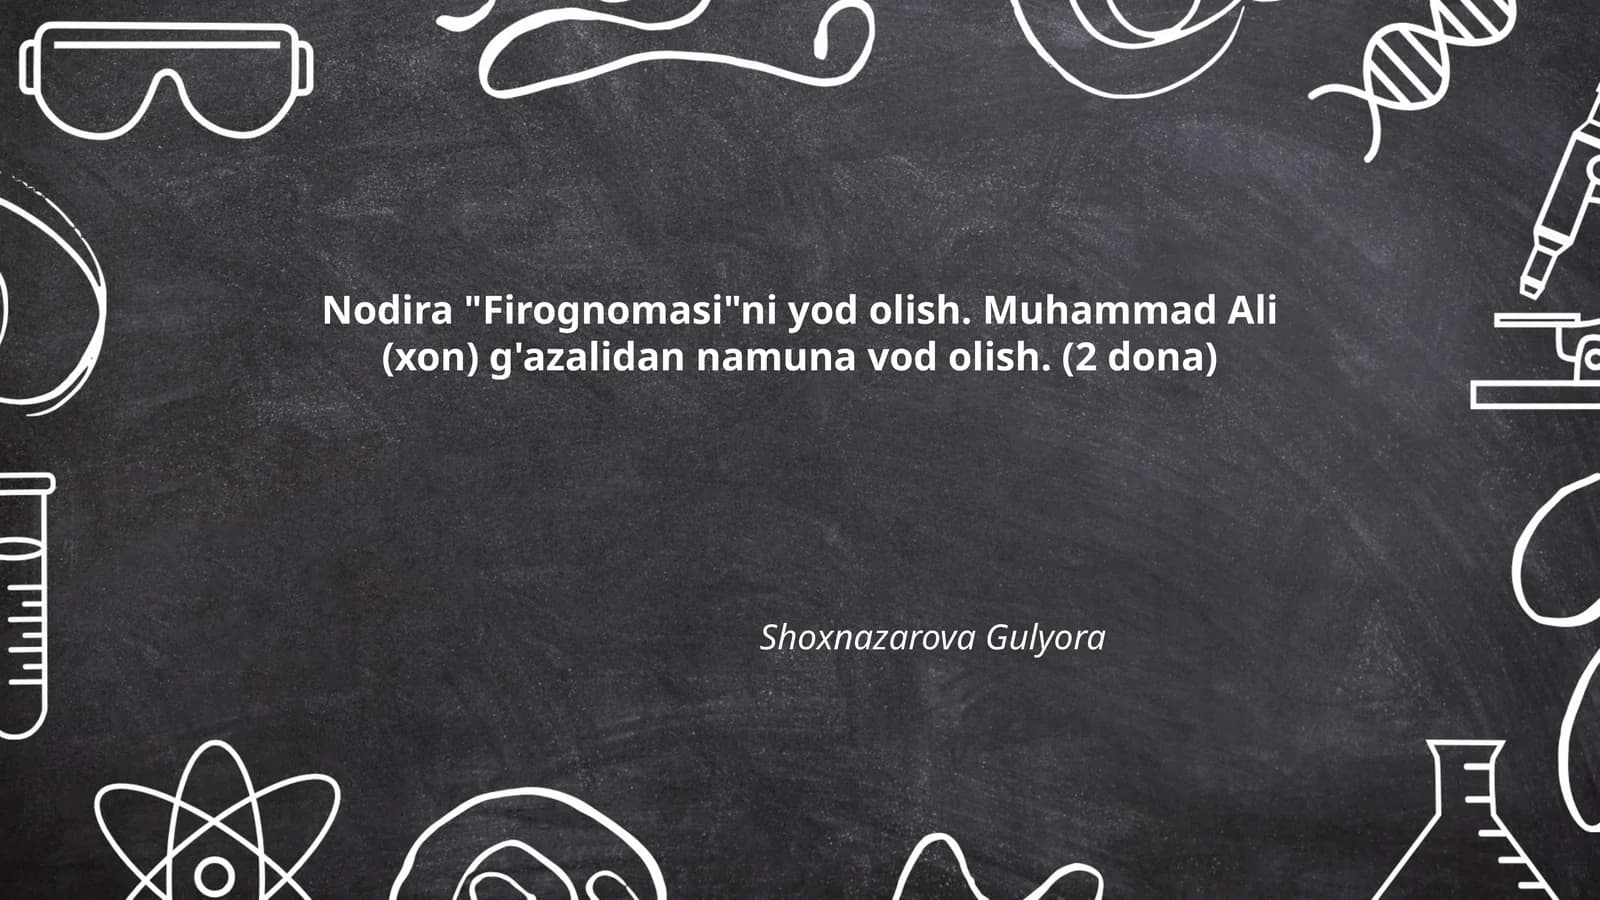 Nodira "Firognomasi"ni yod olish. Muhammad Ali
(xon) g'azalidan namuna vod olish. (2 dona)
Shoxnazarova Gulyora